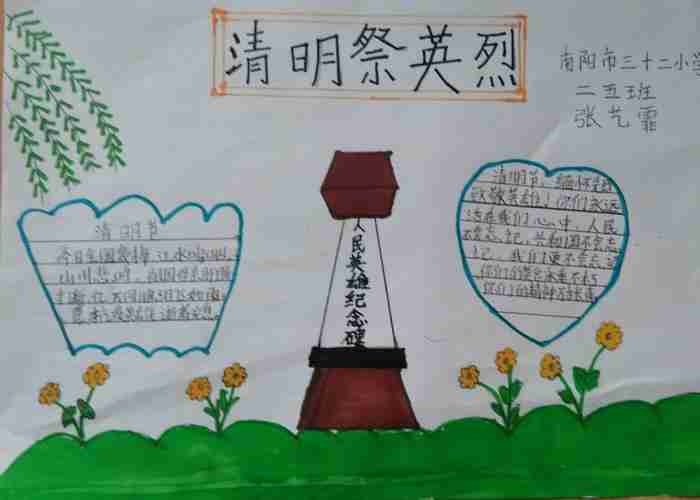 清明祭英烈
南阳市三十二小学
二五班
张艺霏
人民英雄纪念碑
清明节
今日全国哀悼,江水呜咽
山川悲鸣,我国
清明节,缅怀先烈
致敬英雄!你们永远
活在我们心中,人民
不会忘记,共和国不会忘
记,我们更不会忘
你们的英名永垂不朽
你们的精神万古长青